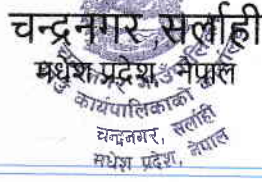 चन्द्रनगर, सर्लाही
मधेश प्रदेश, नेपाल
कार्यपालिकाको
चन्द्रनगर, सर्लाही
मधेश प्रदेश, नेपाल